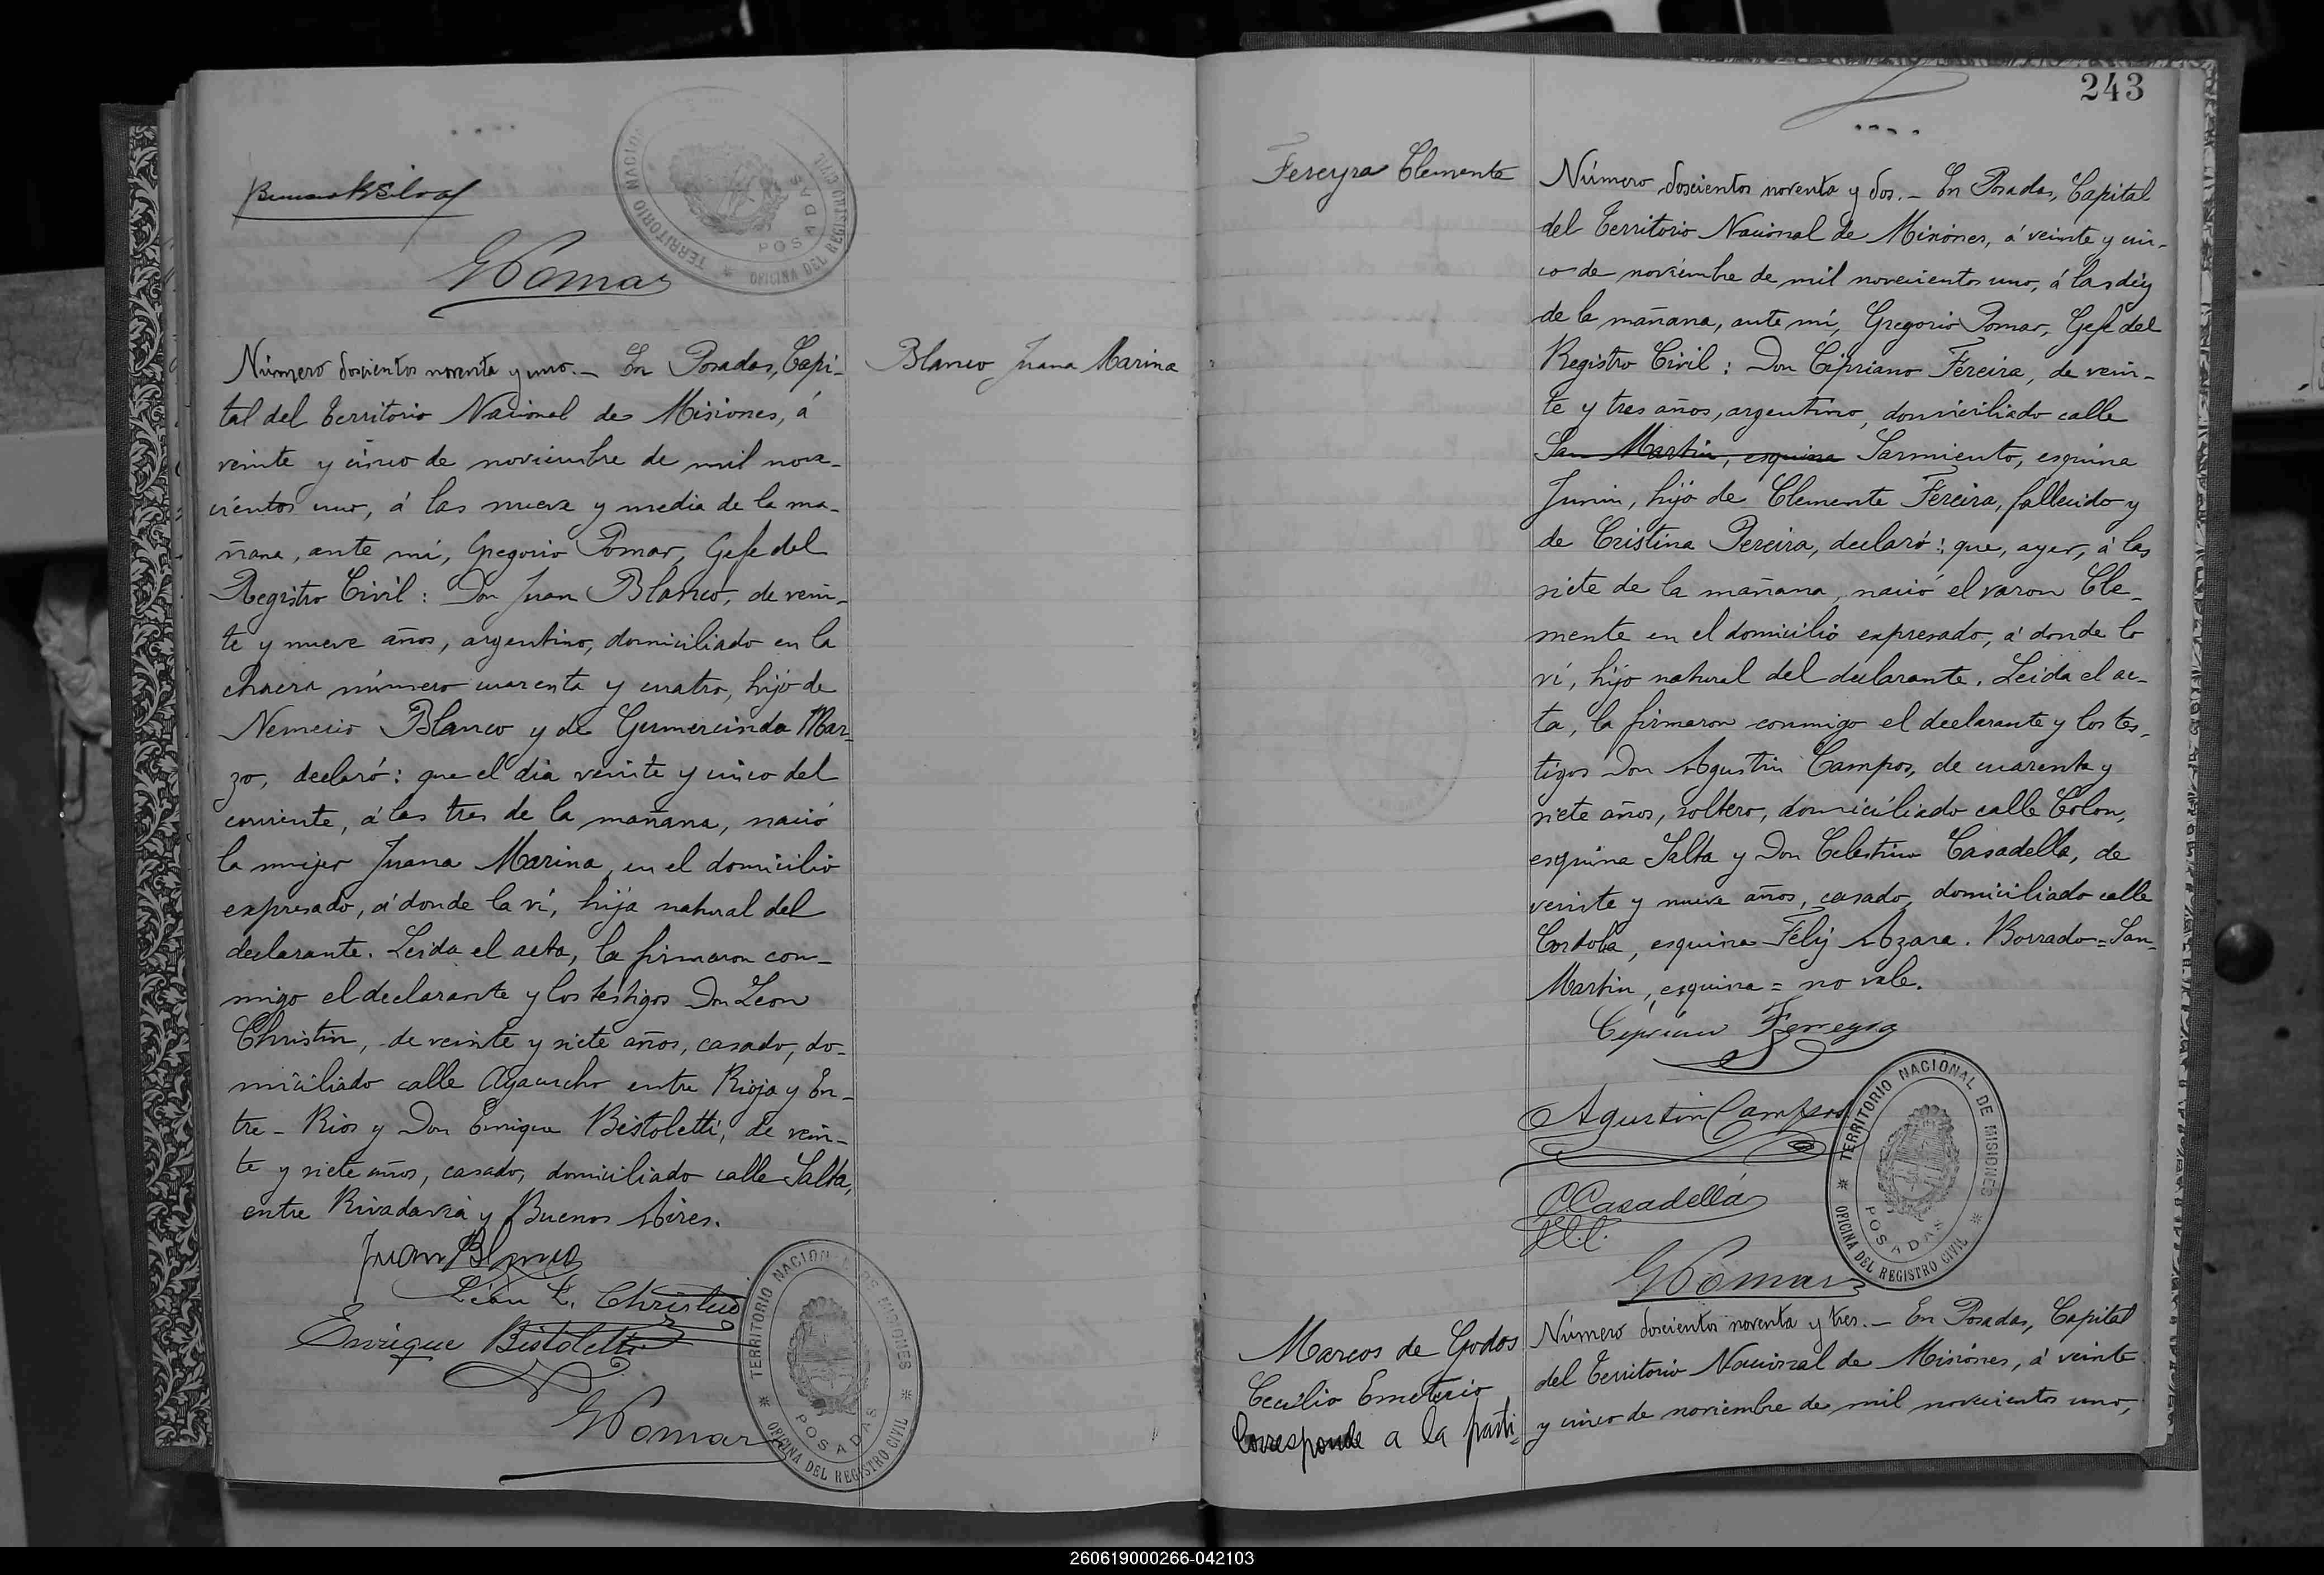 GPomar
TERRITORIO NACIO
POSADAS
OFICINA DEL REGISTRO CIVIL
Blanco Juana Marina
Número doscientos noventa y uno.- En Posadas, Capi-
tal del Territorio Nacional de Misiones, á
veinte y cinco de noviembre de mil nove-
cientos uno, á las nueve y media de la ma-
ñana, ante mí, Gregorio Pomar, Gefe del
Registro Civil: Don Juan Blanco, de vein-
te y nueve años, argentino, domiciliado en la
chacra número cuarenta y cuatro, hijo de
Nemecio Blanco y de Gumercinda Mar-
zo, declaró: que el dia veinte y cinco del
corriente, á las tres de la mañana, nació
la mujer Juana Marina, en el domicilio
expresado, á donde la ví, hija natural del
declarante. Leida el acta, la firmaron con-
migo el declarante y los testigos Don Leon
Christin, de veinte y siete años, casado, do-
miciliado calle Ayacucho entre Rioja y En-
tre-Rios y Don Enrique Bistoletti, de vein-
te y siete años, casado, domiciliado calle Salta,
entre Rivadavia y Buenos Aires.
Juan Blanco
Léon L. Christin
Enrique Bistoletti
GPomar
TERRITORIO NACIONAL DE MISIONES
POSADAS
OFICINA DEL REGISTRO CIVIL
243
Fereyra Clemente
Número doscientos noventa y dos.- En Posadas, Capital
del Territorio Nacional de Misiones, á veinte y cin-
co de noviembre de mil novecientos uno, á las diez
de la mañana, ante mí, Gregorio Pomar, Gefe del
Registro Civil: Don Cipriano Fereira, de vein-
te y tres años, argentino, domiciliado calle
San Martin, esquina Sarmiento, esquina
Junin, hijo de Clemente Fereira, fallecido y
de Cristina Pereira, declaró: que, ayer, á las
siete de la mañana, nació el varon Cle-
mente en el domicilio expresado, á donde lo
ví, hijo natural del declarante. Leida el ac-
ta, la firmaron conmigo el declarante y los tes-
tigos Don Agustin Campos, de cuarenta y
siete años, soltero, domiciliado calle Colon,
esquina Salta y Don Celestino Casadella, de
veinte y nueve años, casado, domiciliado calle
Cordoba, esquina Felij Azara. Borrado=San-
Martin, esquina=no vale.
Cipriano Ferreyra
Agustin Campos
CCasadellá
GPomar
TERRITORIO NACIONAL DE MISIONES
POSADAS
OFICINA DEL REGISTRO CIVIL
Marcos de Godos
Cecilio Emeterio
Corresponde a la parti-
Número doscientos noventa y tres.- En Posadas, Capital
del Territorio Nacional de Misiones, á veinte
y cinco de noviembre de mil novecientos uno,
260619000266-042103